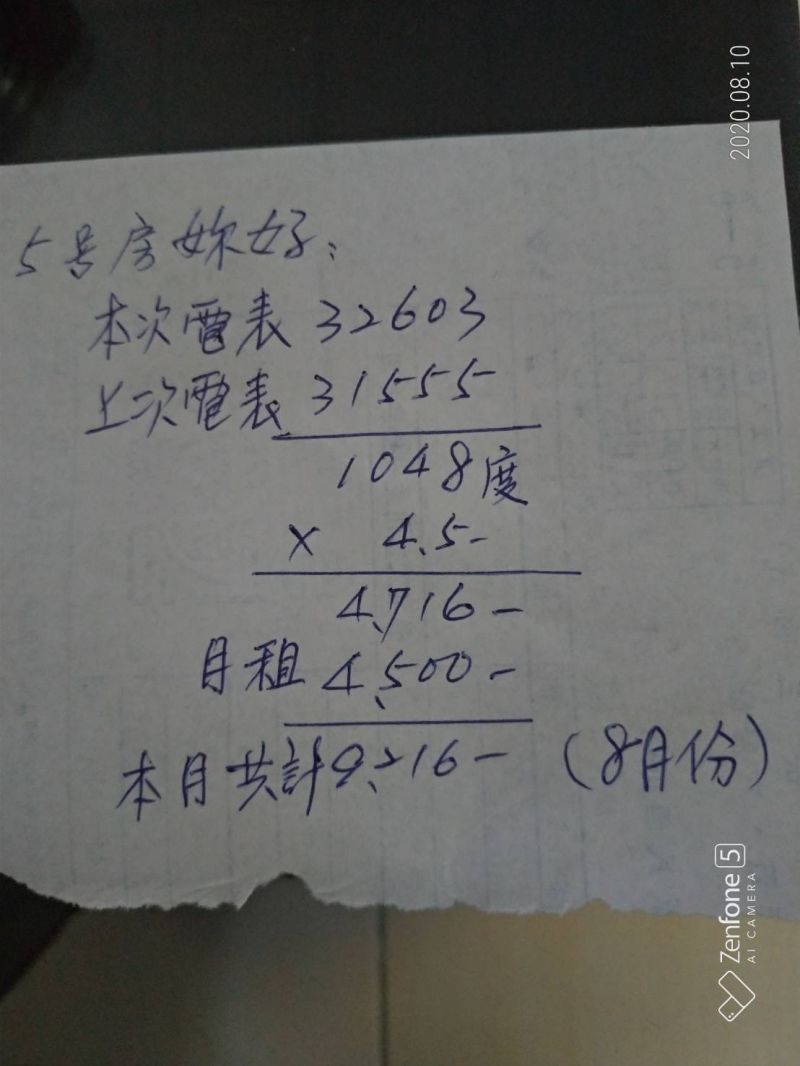 5号房妳好：
本次電表 32603
上次電表 31555
1048度
× 4.5-
4,716-
月租 4,500-
本月共計 9,216- (8月份)
2020.08.10
Zenfone 5
AI CAMERA